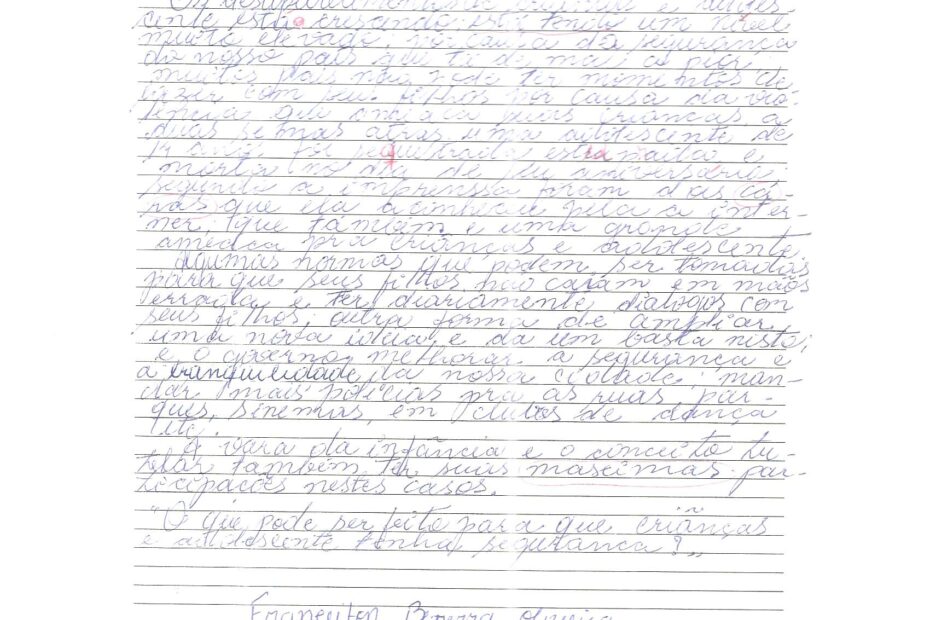 Os desaparecimento de crianças e adoles-
cente está crescendo, está tendo um nivel
muito elevado; por causa da segurança
do nosso país que tá de mau a pior
muitos pais não pode ter momentos de
lazer com seus filhos por causa da vio-
lência que ameaça suas crianças, a
duas semas atras uma adolescente de
14 anos foi sequestrada estramaitao e
morta no dia de seu aniversario,
segundo a imprenssa foram dois ca-
ras que ela aconheceu pela a inter-
ner, que também é uma grande
ameaca pra crianças e adolescente.
Algumas normas que podem ser tomadas
para que seus filhos não caiam em mãos
errada e ter diariamente dialogos com
seus filhos, outra forma de ampliar
uma nova ideia e da um basta nisto,
e o governo melhorar a segurança e
a tranquilidade da nossa cidade; man-
dar mais policias pra as ruas, par-
ques, sinemas, em clubes de dança
etc.
A vara da infância e o conceito tu-
telar também ter suas mascimas par-
ticipações nestes casos.
"O que pode ser feito para que crianças
e adolescente tenha segurança?"
Oliveira